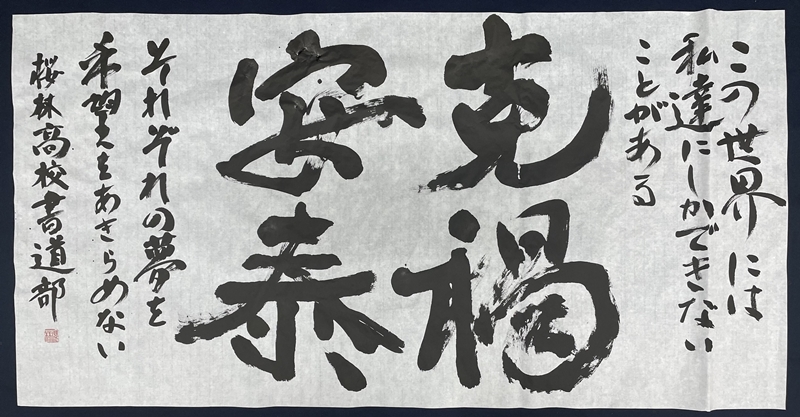 この世界には
私達にしかできない
ことがある
克禍
安泰
それぞれの夢を
希望をあきらめない
桜林高校書道部